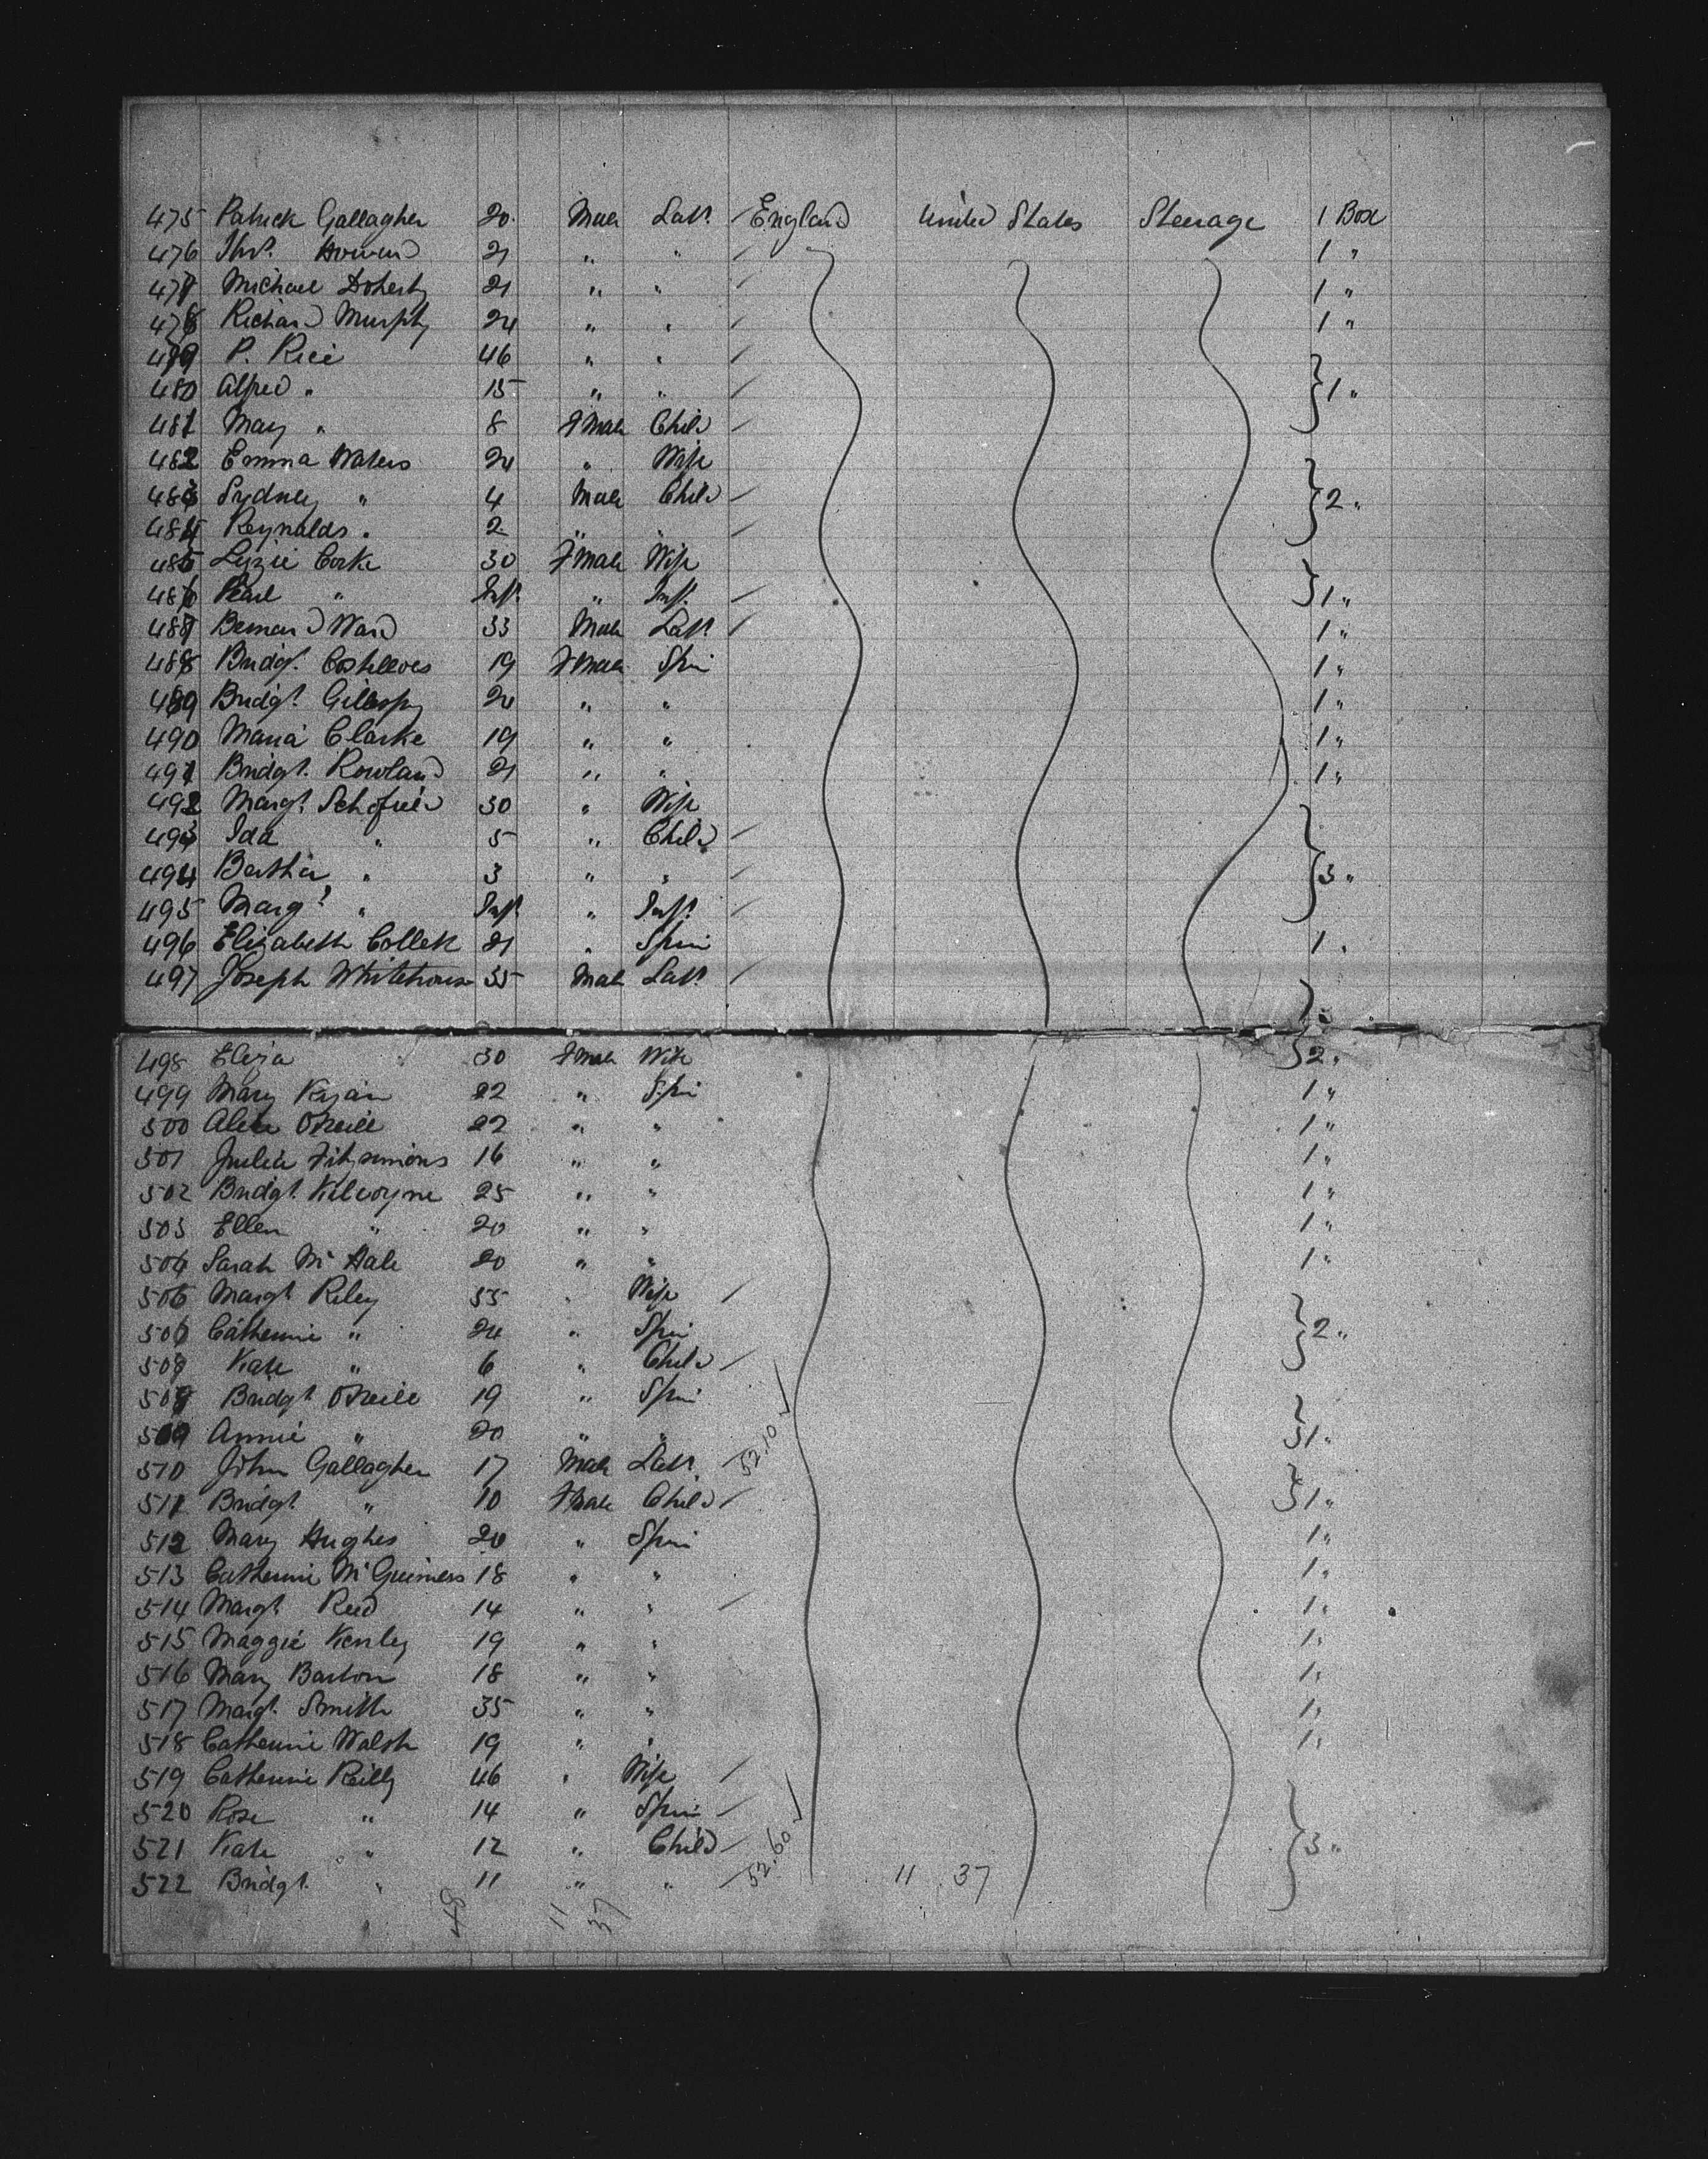 475 Patrick Gallagher 20 Male Labr England United States Steerage 1 Box
476 Thos. 21 " " 1 "
477 Michael Doherty 21 " " 1 "
478 Richard Murphy 24 " " 1 "
479 P. Rice 46 " "
480 Alfred " 15 " " 1 "
481 May " 8 Fmale Child
482 Emma Waters 24 " Wife
483 Sydney " 4 Male Child 2 "
484 Reynalds " 2 " "
485 Lizzie Corke 30 Fmale Wife
486 Pearl " Inft " Inft 1 "
487 Bernard Ward 33 Male Labr 1 "
488 Bridgt. Costelloes 19 Fmale Spin 1 "
489 Bridgt. Gillespy 20 " " 1 "
490 Maria Clarke 19 " " 1 "
491 Bridgt. Rowland 21 " " 1 "
492 Margt. Schofield 30 " Wife
493 Ida " 5 " Child
494 Bertha " 3 " " 3 "
495 Margt " Inft " Inft
496 Elizabeth Collett 21 " Spin 1 "
497 Joseph Whitehouse 35 Male Labr
498 Eliza 30 Fmale Wife 2 "
499 Mary Ryan 22 " Spin 1 "
500 Alice O'Neill 22 " " 1 "
501 Julia Fitzsimons 16 " " 1 "
502 Bridgt. Kilcoyne 25 " " 1 "
503 Ellen " 20 " " 1 "
504 Sarah McHale 20 " " 1 "
506 Margt Riley 35 " Wife
Catherine " 24 " Spin 2 "
Kate " 6 " Child
Bridgt O'Neill 19 " Spin
509 Annie " 20 " " 1 "
510 John Gallagher 17 Male Labr 52.10
511 Bridgt " 10 Fmale Child 1 "
512 Mary Hughes 20 " Spin 1 "
513 Catherine McGuiness 18 " " 1 "
514 Margt Reed 14 " " 1 "
515 Maggie 19 " " 1 "
516 Mary Barton 18 " " 1 "
517 Margt. Smith 35 " " 1 "
518 Catherine Walsh 19 " " 1 "
519 Catherine Reilly 46 " Wife
520 Rose " 14 " Spin
521 Kate " 12 " Child 3 "
522 Bridgt. " 11 " " 52.60 11 37
48 11 37